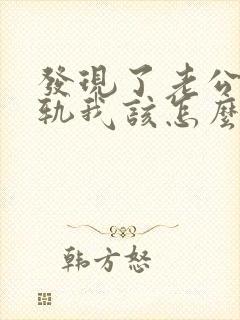 發現了老公
軌我該怎麼
韩方怒